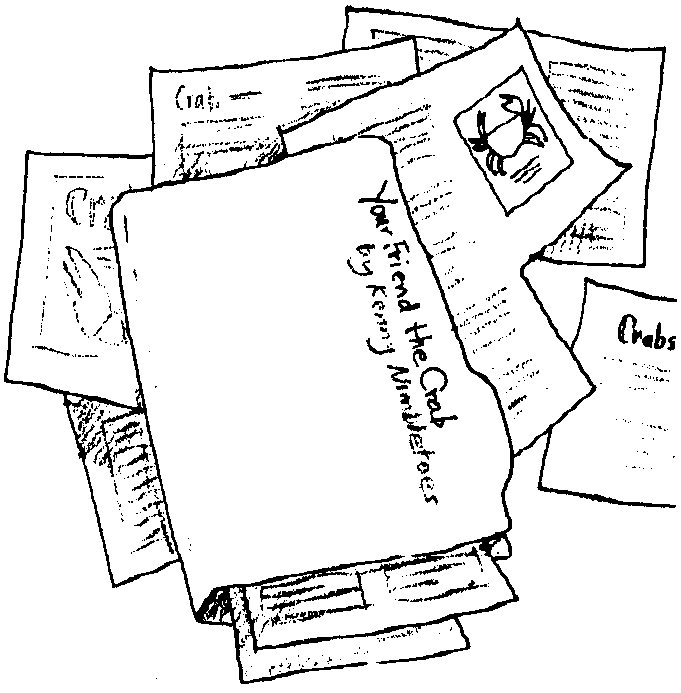 Crab
Cr
Your Friend the Crab
by Kenny Nimbletoes
Crabs